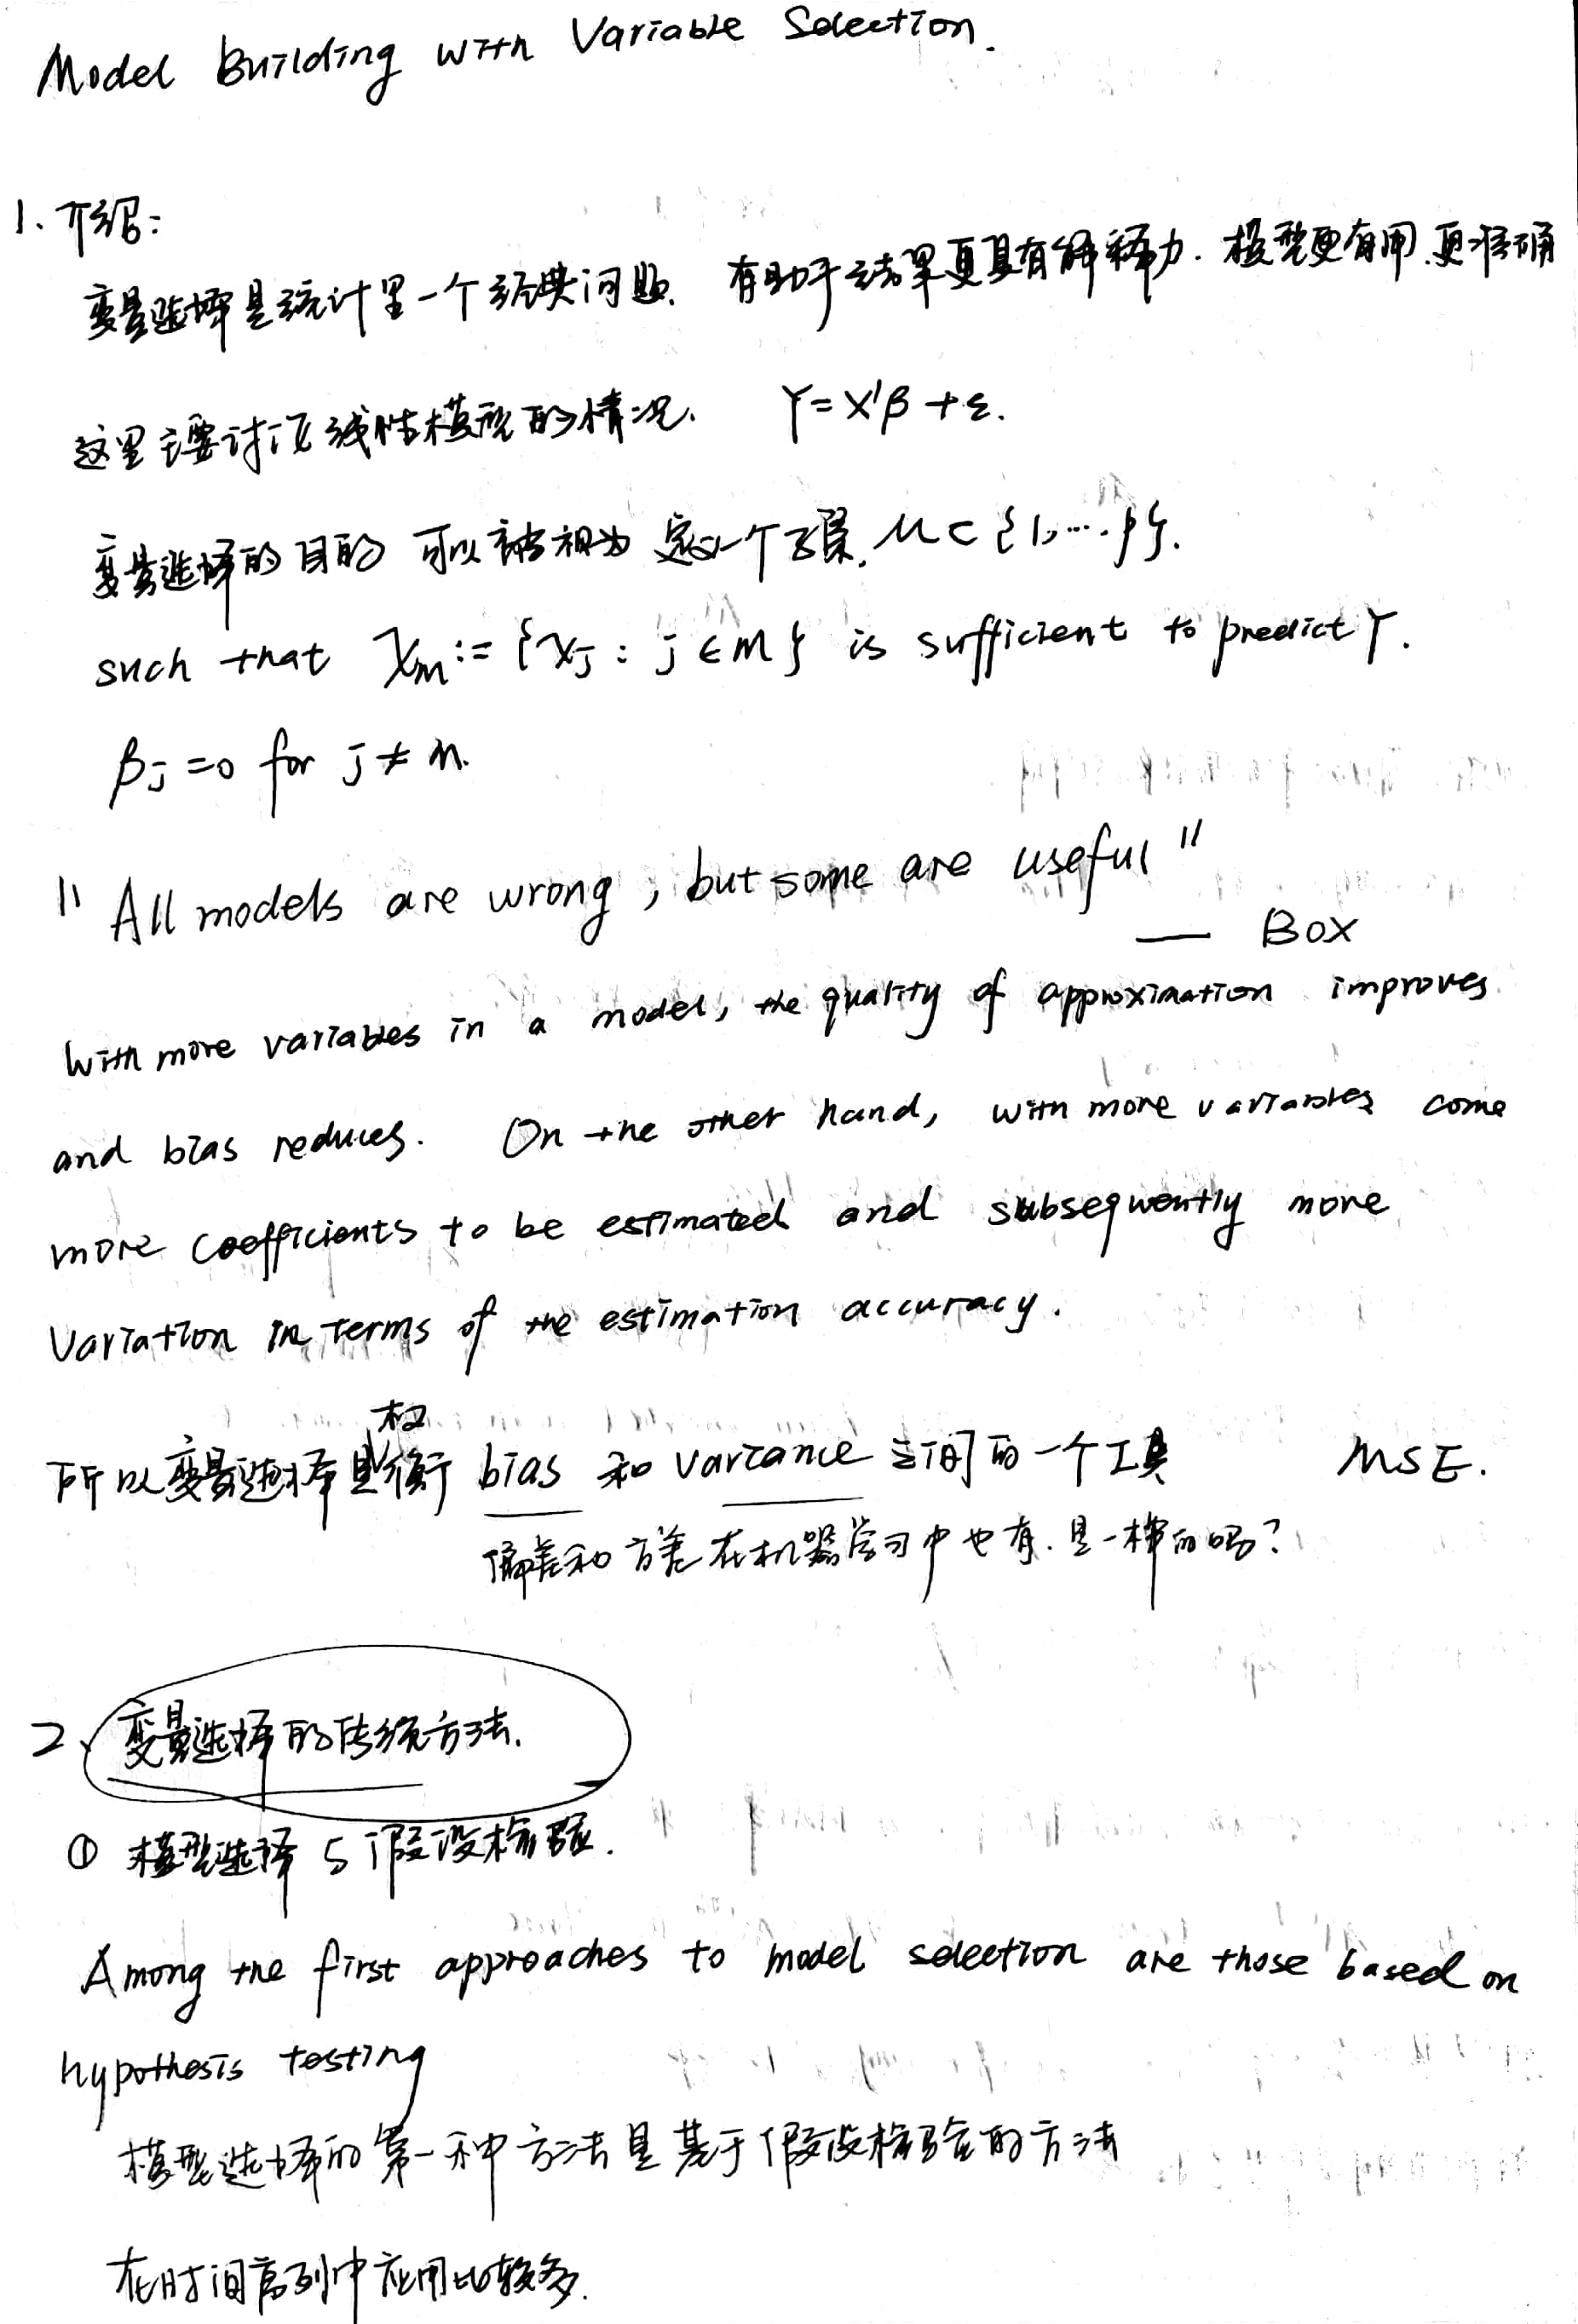 Model Building with Variable Selection.
1. 介绍:
变量选择是统计里一个经典问题. 有助于结果更具有解释力. 模型更有用.更准确
这里主要讨论线性模型的情况. Y=X'β+ε.
变量选择的目的 可以被视为 定义一个子集, M⊂{1,…p}.
such that Xm:={xj: j∈M} is sufficient to predict Y.
βj=0 for j≠m.
"All models are wrong, but some are useful"
— Box
With more variables in a model, the quality of approximation improves
and bias reduces. On the other hand, with more variables come
more coefficients to be estimated and subsequently more
Variation in terms of the estimation accuracy.
所以变量选择是权衡 bias 和 variance 之间的一个工具 MSE.
偏差和方差在机器学习中也有.是一样的吗?
2、变量选择的传统方法.
① 模型选择与假设检验.
Among the first approaches to model selection are those based on
hypothesis testing
模型选择的第一种方法是基于假设检验的方法
在时间序列中应用比较多.